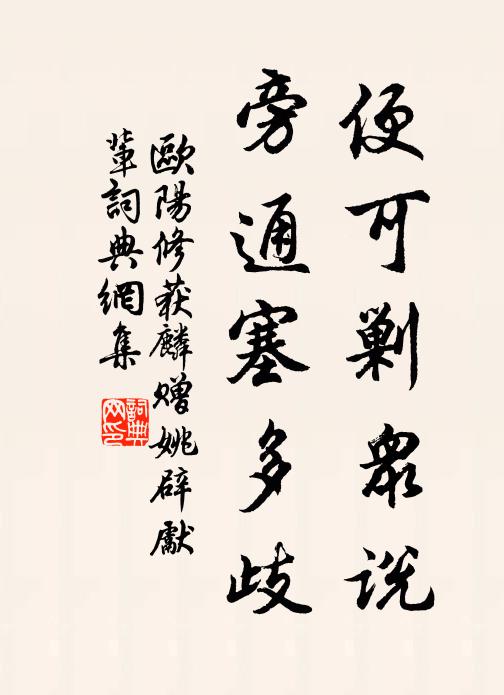 便可剿眾說
旁通塞多歧
歐陽修获麟贈姚辟獻
輩詞典網集
詞典
网印